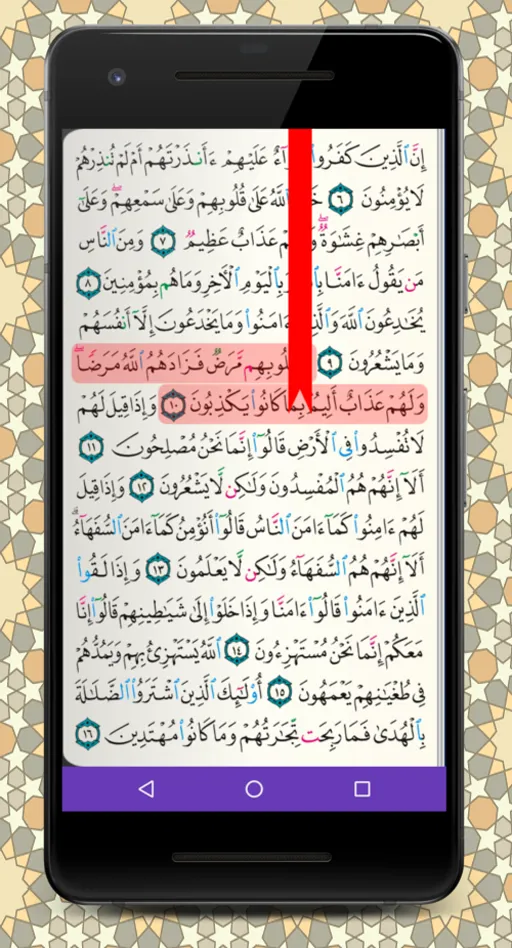 إِنَّ ٱلَّذِينَ كَفَرُوا۟ عَلَيْهِمْ ءَأَنذَرْتَهُمْ أَمْ لَمْ تُنذِرْهُمْ
لَا يُؤْمِنُونَ ٦ ٱللَّهُ عَلَىٰ قُلُوبِهِمْ وَعَلَىٰ سَمْعِهِمْ ۖ وَعَلَىٰٓ
أَبْصَـٰرِهِمْ غِشَـٰوَةٌ ۖ عَذَابٌ عَظِيمٌ ٧ وَمِنَ ٱلنَّاسِ
مَن يَقُولُ ءَامَنَّا وَبِٱلْيَوْمِ ٱلْـَٔاخِرِ وَمَا هُم بِمُؤْمِنِينَ ٨
يُخَـٰدِعُونَ ٱللَّهَ ءَامَنُوا۟ وَمَا يَخْدَعُونَ إِلَّآ أَنفُسَهُمْ
وَمَا يَشْعُرُونَ ٩ قُلُوبِهِم مَّرَضٌ فَزَادَهُمُ ٱللَّهُ مَرَضًا ۖ
وَلَهُمْ عَذَابٌ أَلِيمٌۢ بِمَا كَانُوا۟ يَكْذِبُونَ ١٠ وَإِذَا قِيلَ لَهُمْ
لَا تُفْسِدُوا۟ فِى ٱلْأَرْضِ قَالُوٓا۟ إِنَّمَا نَحْنُ مُصْلِحُونَ ١١
أَلَآ إِنَّهُمْ هُمُ ٱلْمُفْسِدُونَ وَلَـٰكِن لَّا يَشْعُرُونَ ١٢ وَإِذَا قِيلَ
لَهُمْ ءَامِنُوا۟ كَمَآ ءَامَنَ ٱلنَّاسُ قَالُوٓا۟ أَنُؤْمِنُ كَمَآ ءَامَنَ ٱلسُّفَهَآءُ ۗ
أَلَآ إِنَّهُمْ هُمُ ٱلسُّفَهَآءُ وَلَـٰكِن لَّا يَعْلَمُونَ ١٣ وَإِذَا لَقُوا۟
ٱلَّذِينَ ءَامَنُوا۟ قَالُوٓا۟ ءَامَنَّا وَإِذَا خَلَوْا۟ إِلَىٰ شَيَـٰطِينِهِمْ قَالُوٓا۟ إِنَّا
مَعَكُمْ إِنَّمَا نَحْنُ مُسْتَهْزِءُونَ ١٤ ٱللَّهُ يَسْتَهْزِئُ بِهِمْ وَيَمُدُّهُمْ
فِى طُغْيَـٰنِهِمْ يَعْمَهُونَ ١٥ أُو۟لَـٰٓئِكَ ٱلَّذِينَ ٱشْتَرَوُا۟ ٱلضَّلَـٰلَةَ
بِٱلْهُدَىٰ فَمَا رَبِحَت تِّجَـٰرَتُهُمْ وَمَا كَانُوا۟ مُهْتَدِينَ ١٦